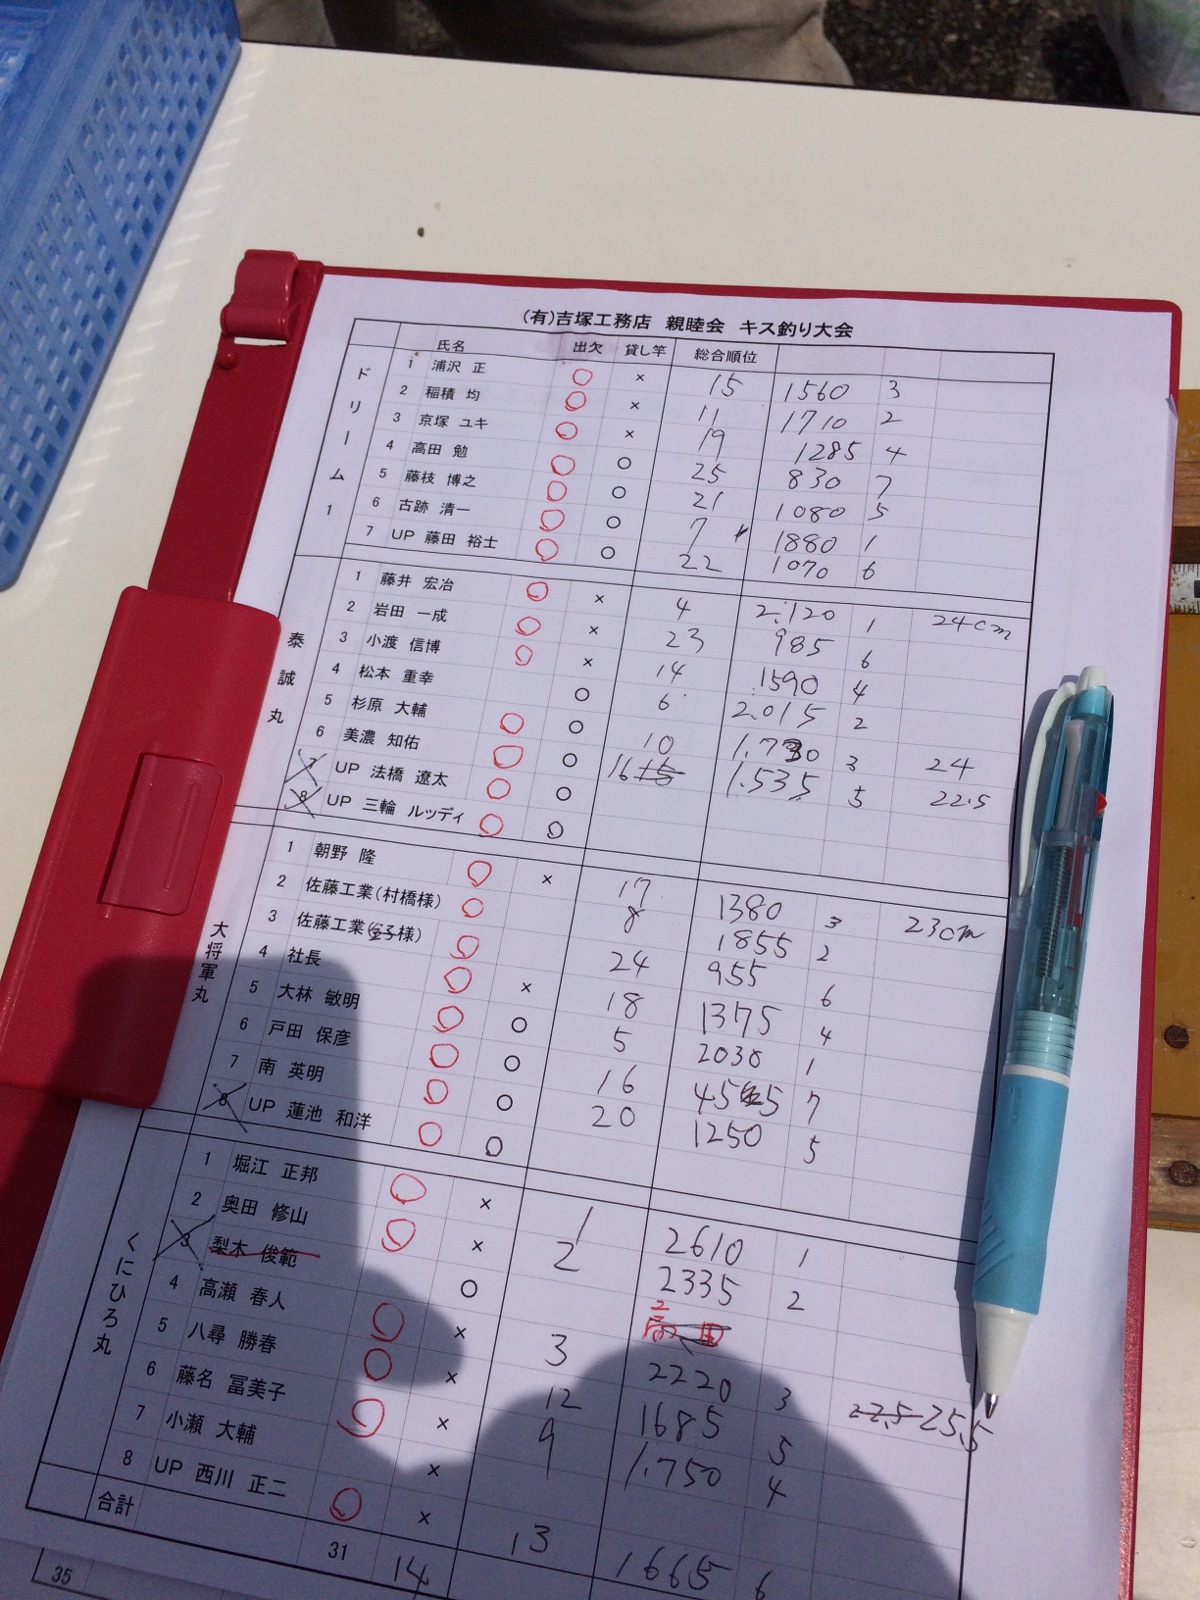 (有)吉塚工務店 親睦会 キス釣り大会
氏名 出欠 貸し竿 総合順位
ドリーム1
1 浦沢 正 ○ × 15 1560 3
2 稲積 均 ○ × 11 1710 2
3 京塚 ユキ ○ × 19 1285 4
4 高田 勉 ○ ○ 25 830 7
5 藤枝 博之 ○ ○ 21 1080 5
6 古跡 清一 ○ ○ 7 1880 1
7 UP 藤田 裕士 ○ ○ 22 1070 6
泰誠丸
1 藤井 宏冶 ○ × 4 2.120 1 24cm
2 岩田 一成 ○ × 23 985 6
3 小渡 信博 ○ × 14 1590 4
4 松本 重幸 ○ 6 2.015 2
5 杉原 大輔 ○ ○ 10 1.730 3 24
6 美濃 知佑 ○ ○ 16 15 1.535 5 22.5
7 UP 法橋 遼太 ○ ○
8 UP 三輪 ルッディ ○ ○
大将軍丸
1 朝野 隆 ○ × 17 1380 3 23cm
2 佐藤工業(村橋様) ○ 8 1855 2
3 佐藤工業(金子様) ○ 24 955 6
4 社長 ○ × 18 1375 4
5 大林 敏明 ○ ○ 5 2030 1
6 戸田 保彦 ○ ○ 16 455 7
7 南 英明 ○ ○ 20 1250 5
8 UP 蓮池 和洋 ○ ○
くにひろ丸
1 堀江 正邦 ○ × 1 2610 1
2 奥田 修山 ○ × 2 2335 2
3 梨木 俊範 ○
4 高瀬 春人 ○ × 3 2220 3 22.5 25.5
5 八尋 勝春 ○ × 12 1685 5
6 藤名 冨美子 ○ × 9 1.750 4
7 小瀬 大輔 ×
8 UP 西川 正二 ○ × 13 1665 6
合計 31 14
35